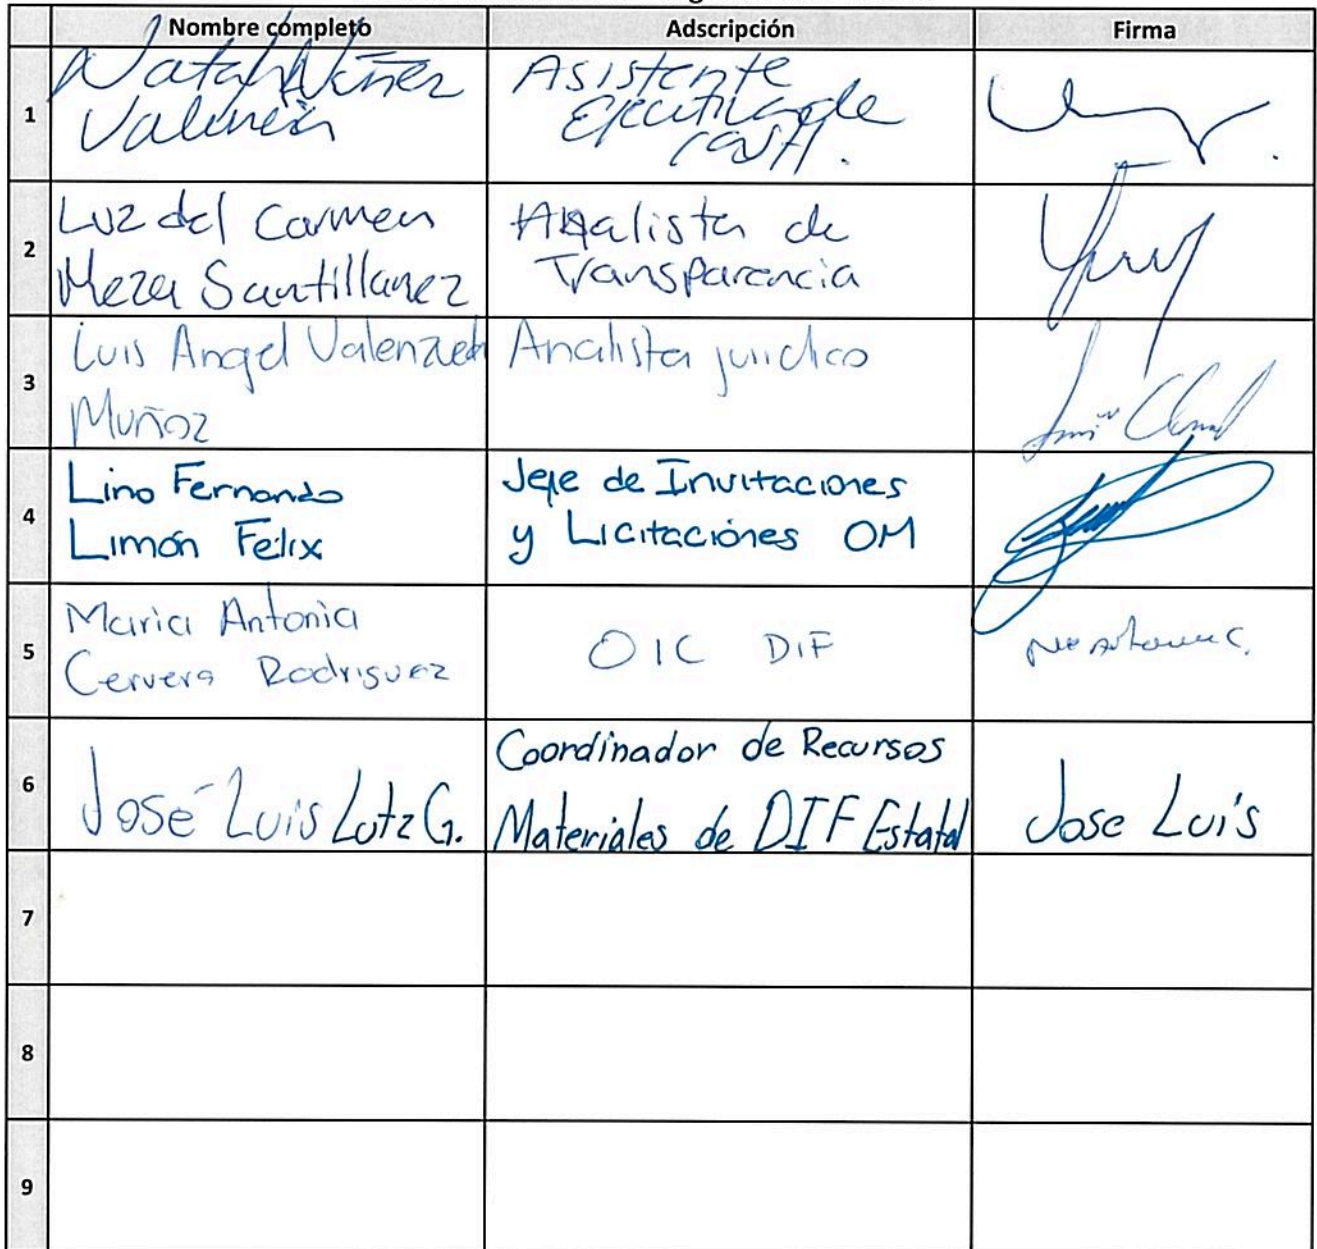 Nombre completo Adscripción Firma
1
Núñez
Valencia
Asistente
Ejecutiva de
2
Luz del Carmen
Meza Santillanez
Analista de
Transparencia
3
Luis Angel Valenzuela
Muñoz
Analista juridico
4
Lino Fernando
Limón Félix
Jefe de Invitaciones
y Licitaciónes OM
5
Maria Antonia
Cervera Rodriguez
OIC DIF
6
José Luis Lutz G.
Coordinador de Recursos
Materiales de DIF Estatal
Jose Luis
7
8
9